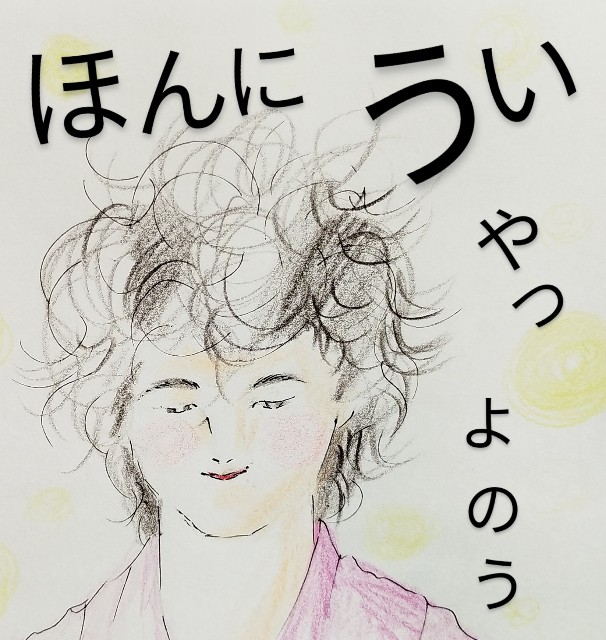 ほんに
うい
やっ
よのう